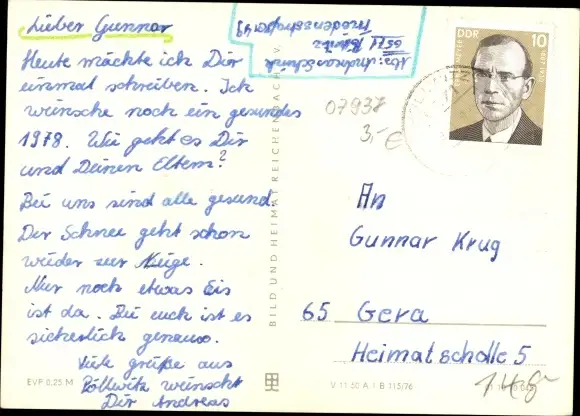 Lieber Gunnar
Heute möchte ich Dir
einmal schreiben. Ich
wünsche noch ein gesundes
1978. Wie geht es Dir
und Deinen Eltern?
Bei uns sind alle gesund.
Der Schnee geht schon
wieder zur Neige.
Nur noch etwas Eis
ist da. Bei euch ist es
sicherlich genauso.
Viele grüße aus
Pöllwitz wünscht
Dir Andreas
EVP 0,25 M
Abs: Andreas
6571 Pöllwitz
Friedensstraße 48
BILD UND HEIMAT REICHENBACH I. V.
V 11 50 A 1 B 115/76
DDR
10
07937
3,- €
An
Gunnar Krug
65 Gera
Heimatscholle 5